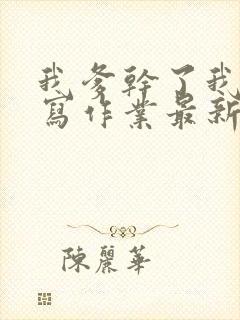 我爹幹了我
寫作業最新
陳麗華